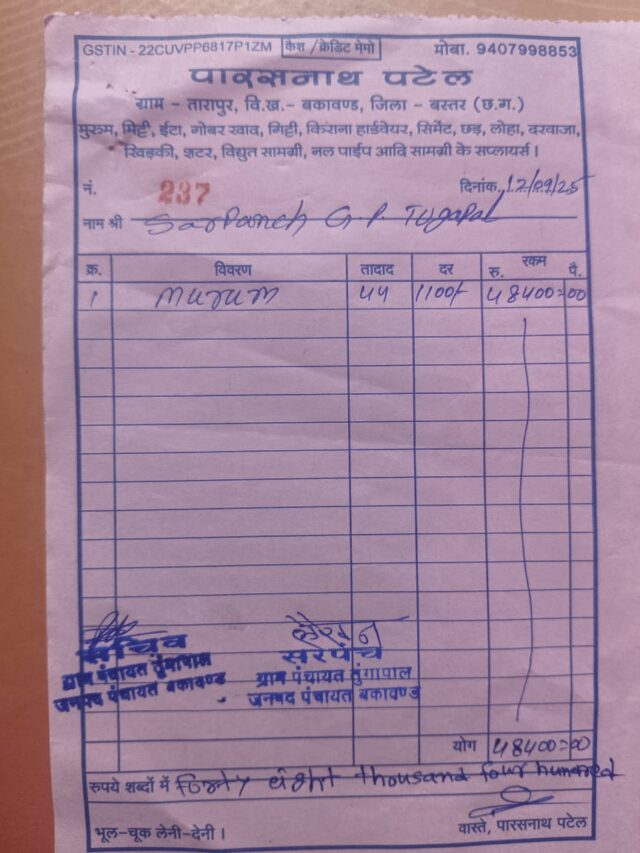 GSTIN - 22CUVPP6817P1ZM कैश / क्रेडिट मेमो मोबा. 9407998853
पारसनाथ पटेल
ग्राम - तारापुर, वि.ख.- बकावण्ड, जिला - बस्तर (छ.ग.)
मुरुम, मिट्टी, ईटा, गोबर खाद, गिट्टी, किराना हार्डवेयर, सिमेंट, छड़, लोहा, दरवाजा,
खिड़की, शटर, विद्युत सामग्री, नल पाईप आदि सामग्री के सप्लायर्स।
नं. 237 दिनांक 12/09/25
नाम श्री Sarpanch G.P. Tugapal
क्र. विवरण तादाद दर रकम
रु. पै.
1 murum 44 1100/- 48400=00
सचिव सरपंच
ग्राम पंचायत तुंगापाल ग्राम पंचायत तुंगापाल
जनपद पंचायत बकावण्ड जनपद पंचायत बकावण्ड
योग 48400=00
रुपये शब्दों में forty eight thousand four hundred
भूल-चूक लेनी-देनी। वास्ते, पारसनाथ पटेल